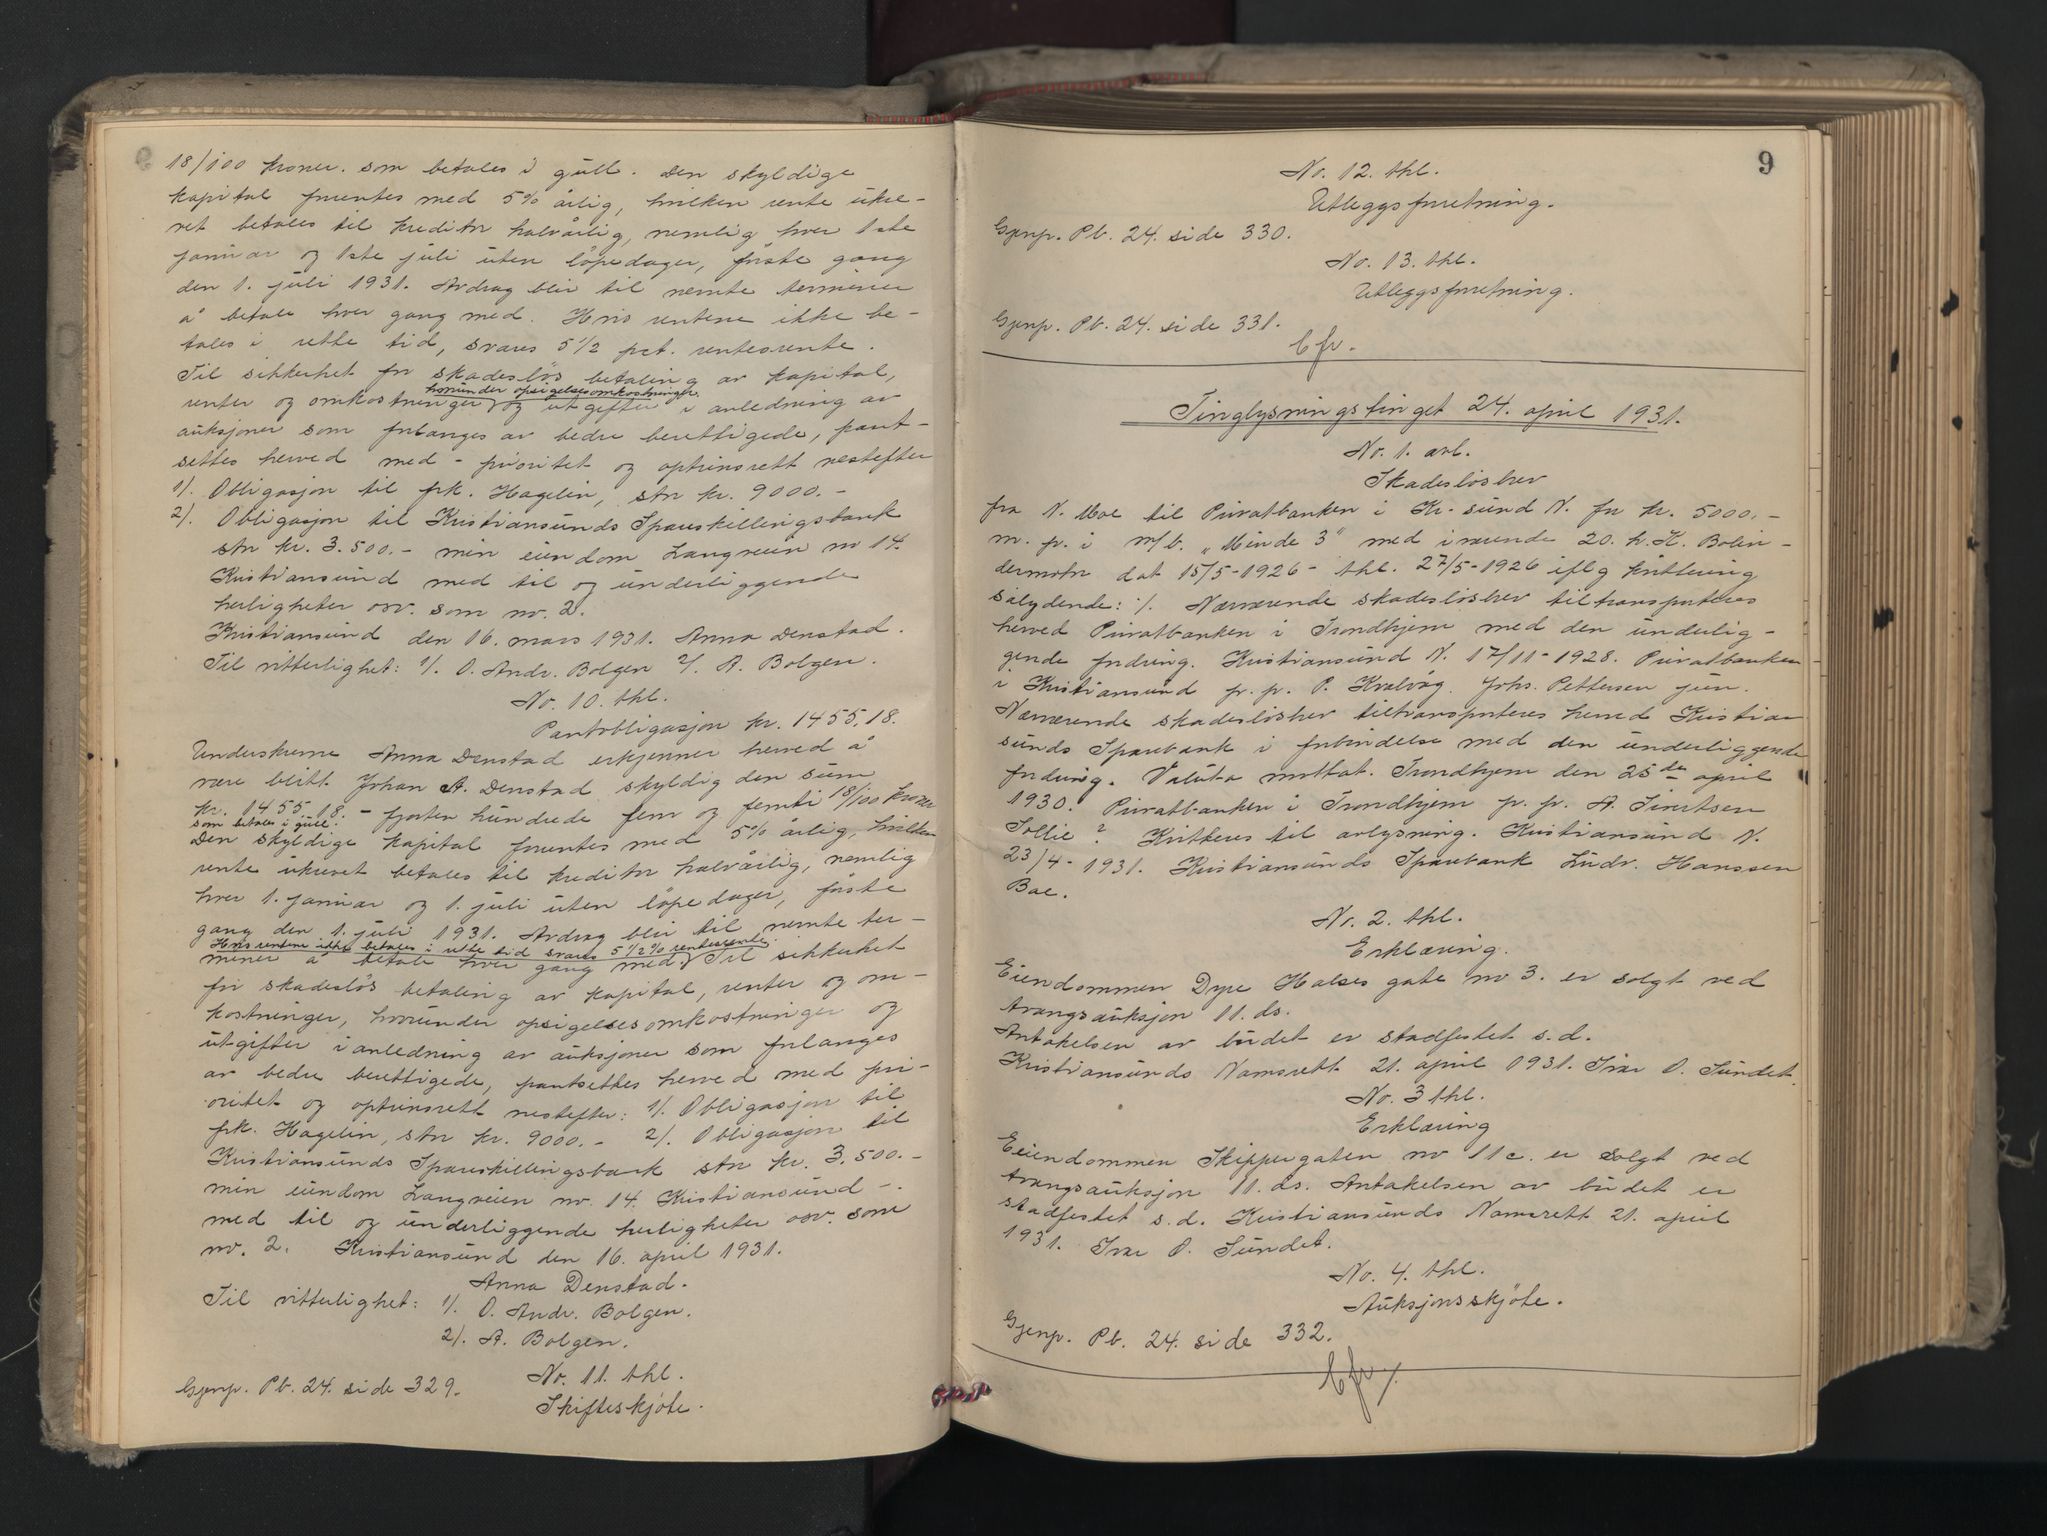 18/100 kroner. som betales i gull. Den skyldige
kapital forrentes med 5% årlig, hvilken rente ukre-
vet betales til kreditor halvårlig, nemlig hver 1ste
januar og 1ste juli uten löpedager, förste gang
den 1. juli 1931. Avdrag blir til nevnte terminer
å betale hver gang med. Hvis rentene ikke be-
tales i rette tid, svares 5 1/2 pct. rentesrente.
Til sikkerhet for skadeslös betaling av kapital,
herunder opsigelsesomkostninger.
renter og omkostninger og utgifter i anledning av
auksjoner som forlanges av bedre berettigede, pant-
settes herved med - prioritet og optrinsrett nestefter
1/. Obligasjon til frk. Hagelin, stor kr. 9000.-
2/. Obligasjon til Kristiansunds Spareskillingsbank
stor kr. 3.500.- min eiendom Langveien nr 14.
Kristiansund med til og underliggende
herligheter osv. som nr. 2.
Kristiansund den 16. mars 1931. Anna Denstad.
Til vitterlighet: 1/. O. Andr. Bolgen 2/. A. Bolgen.
No. 10. thl.
Pantobligasjon kr. 1455.18.
Underskrevne Anna Denstad erkjenner herved å
være blitt Johan A. Denstad skyldig den sum
kr. 1455.18. - fjorten hundrede fem og femti 18/100 kroner
som betales i gull.
Den skyldige kapital forrentes med 5% årlig, hvilken
rente ukrevet betales til kreditor halvårlig, nemlig
hver 1. januar og 1. juli uten löpedager, förste
gang den 1. juli 1931. Avdrag blir til nevnte ter-
Hvis rentene ikke betales i rette tid svares 5 1/2 % rentesrente.
miner å betale hver gang med. Til sikkerhet
for skadeslös betaling av kapital, renter og om-
kostninger, herunder opsigelsesomkostninger og
utgifter i anledning av auksjoner som forlanges
av bedre berettigede, pantsettes herved med pri-
oritet og optrinsrett nestefter: 1/. Obligasjon til
frk. Hagelin, stor kr. 9000.- 2/. Obligasjon til
Kristiansunds Spareskillingsbank stor kr. 3.500.-
min eiendom Langveien nr. 14. Kristiansund -.
med til og underliggende herligheter osv. som
nr. 2. Kristiansund den 16. april 1931.
Anna Denstad.
Til vitterlighet: 1/. O. Andr. Bolgen.
2/. A. Bolgen.
No. 11. thl.
Gjenp. Pb. 24. side 329.
Skifteskjöte.
9
No. 12. thl.
Utleggsforretning.
Gjenp. Pb. 24. side 330.
No. 13. thl.
Utleggsforretning.
Gjenp. Pb. 24. side 331.
Tinglysningstinget 24. april 1931.
No. 1. avl.
Skadeslösbrev
fra N. Moe til Privatbanken i Kr. sund N. for kr. 5000.-
m. p. i m/b. „Minde 3" med iværende 20. h. K. Bolin-
dermotor dat 15/5-1926 - thl. 27/5-1926 iflg kvittering
sålydende: ./. Nærværende skadeslösbrev tiltransporteres
herved Privatbanken i Trondhjem med den underlig-
gende fordring. Kristiansund N. 17/11-1928. Privatbanken
i Kristiansund p. p. P. Kvalvåg. Johs. Pettersen jun.
Nærværende skadeslösbrev tiltransporteres herved Kristian
sunds Sparebank i forbindelse med den underliggende
fordring. Valuta mottat. Trondhjem den 25de april
1930. Privatbanken i Trondhjem p. p. A. Sivertsen
Sollie ? Kvitteres til avlysning. Kristiansund N.
23/4-1931. Kristiansunds Sparebank Ludv. Hanssen
Bae.
No. 2. thl.
Erklæring.
Eiendommen Dyre Halses gate nr 3. er solgt ved
tvangsauksjon 11. ds.
Antakelsen av budet er stadfestet s.d.
Kristiansunds Namsrett 21. april 1931. Ivar O. Sundet.
No. 3 thl.
Erklæring
Eiendommen Skippergaten nr 11 c. er solgt ved
tvangsauksjon 11. ds. Antakelsen av budet er
stadfestet s.d. Kristiansunds Namsrett 21. april
1931. Ivar O. Sundet.
No. 4. thl.
Auksjonsskjöte.
Gjenp. Pb. 24. side 332.